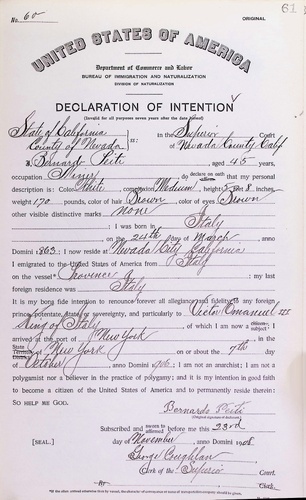 No. 60
ORIGINAL
61
UNITED STATES OF AMERICA
Department of Commerce and Labor
BUREAU OF IMMIGRATION AND NATURALIZATION
DIVISION OF NATURALIZATION
DECLARATION OF INTENTION
(Invalid for all purposes seven years after the date hereof)
State of California
County of Nevada ss:
In the Superior Court
of Nevada County Calif
I, Bernardo Peiti, aged 45 years,
occupation Miner, do declare on oath that my personal
description is: Color White, complexion Medium, height 5 feet 8 inches,
weight 170 pounds, color of hair Brown, color of eyes Brown
other visible distinctive marks none
; I was born in Italy
on the 24th day of March, anno
Domini 1863; I now reside at Nevada City California
I emigrated to the United States of America from Italy
on the vessel Province; my last
foreign residence was Italy
It is my bona fide intention to renounce forever all allegiance and fidelity to any foreign
prince, potentate, state, or sovereignty, and particularly to Victor Emanuel III
King of Italy, of which I am now a subject; I
arrived at the port of New York, in the
State of New York on or about the 7th day
of October, anno Domini; I am not an anarchist; I am not a
polygamist nor a believer in the practice of polygamy; and it is my intention in good faith
to become a citizen of the United States of America and to permanently reside therein:
SO HELP ME GOD.
Bernardo Peiti
(Original signature of declarant)
Subscribed and sworn to before me this 23rd
[SEAL.] day of November, anno Domini 1908
George Coughlan
Clerk of the Superior Court.